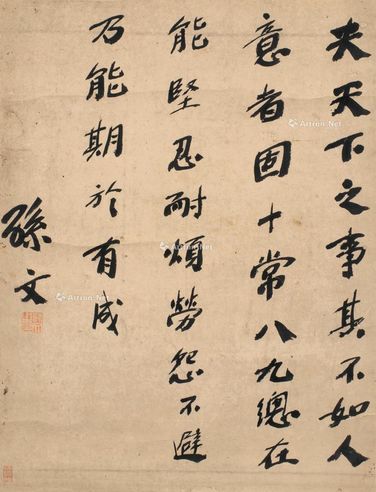 夫天下之事其不如人
意者固十常八九總在
能堅忍耐煩勞怨不避
乃能期於有成
孫文
Artron.Net
Artron.Net
Artron.Net